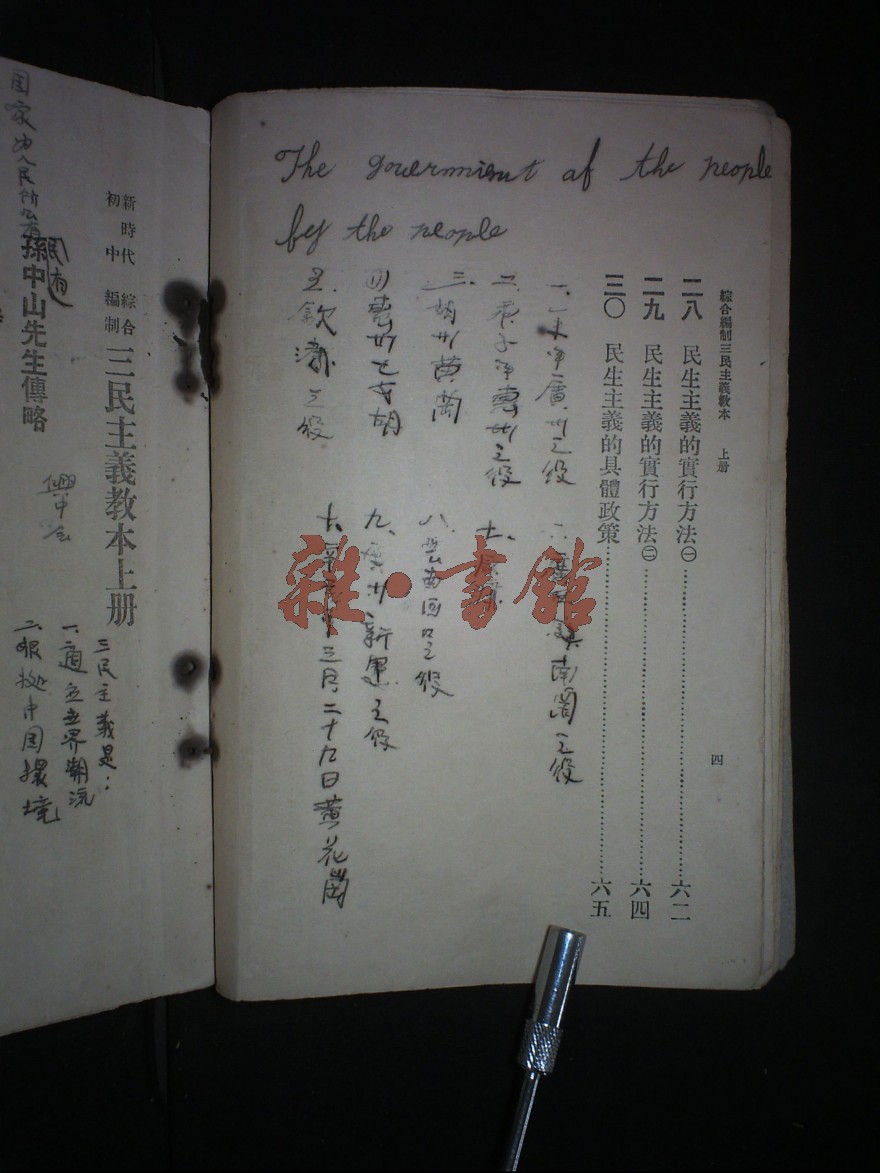 The govermient af the people
by the people
綜合編制三民主義教本 上册
二八 民生主義的實行方法㊀……六二
二九 民生主義的實行方法㊁……六四
三〇 民生主義的具體政策……六五
四
一、
廣州之役
二、庚子年惠州之役
三、黃岡
四 惠州七女胡
五、欽 之役
六、南關之役
七、
八、河口之役
九、廣州新軍之役
十、辛亥年三月二十九日黃花崗
雜·書館
新時代 綜合
初中 編制
三民主義教本上册
三民主義是:
一、適 世界潮流
二、根據中国環境
孫中山先生傳略
興中会
民有
国家为人民所公有